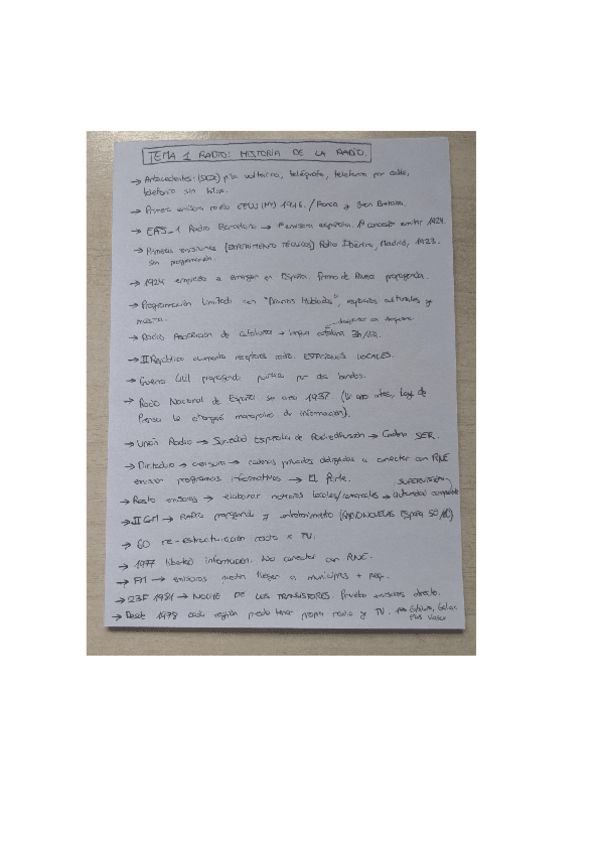 TEMA 1 RADIO: HISTORIA DE LA RADIO.
→ Antecedentes: pila voltaica, telégrafo, teléfono por cable,
teléfono sin hilos.
→ Primera emisora radio (NY) 1916. / Francia
→ EAJ-1 Radio Barcelona → 1ª emisora española. 1924.
→ Primeras emisiones Radio Ibérica, Madrid, 1923.
sin programación.
→ 1924 empieza a emerger en España. propaganda.
→ Programación limitada con "Diarios Hablados", espacios culturales y
música.
→ Radio Asociación de Catalunya → lengua catalana
→ II República aumenta receptores radio. EMISIONES LOCALES.
→ Guerra Civil propaganda por dos bandos.
→ Radio Nacional de España se crea 1937 Ley de
Prensa le otorga monopolio de información).
→ Unión Radio → Sociedad Española de Radiodifusión → Cadena SER.
→ Dictadura → censura → cadenas privadas obligadas a conectar con RNE
emisión programas informativos → El Parte.
SUPERVISIÓN
→ Resto emisoras → elaborar noticias locales/comarcales → autoridad competente
→ II GM → Radio propaganda y entretenimiento (RADIONOVELAS España
→ 60 re-estructuración radio x TV.
→ 1977 libertad información. No conectar con RNE.
→ FM → emisoras llegar a municipios + peq.
→ 23F 1981 → NOCHE DE LOS TRANSISTORES. directo.
→ Desde 1978 cada región puede tener propia radio y TV.
País Vasco